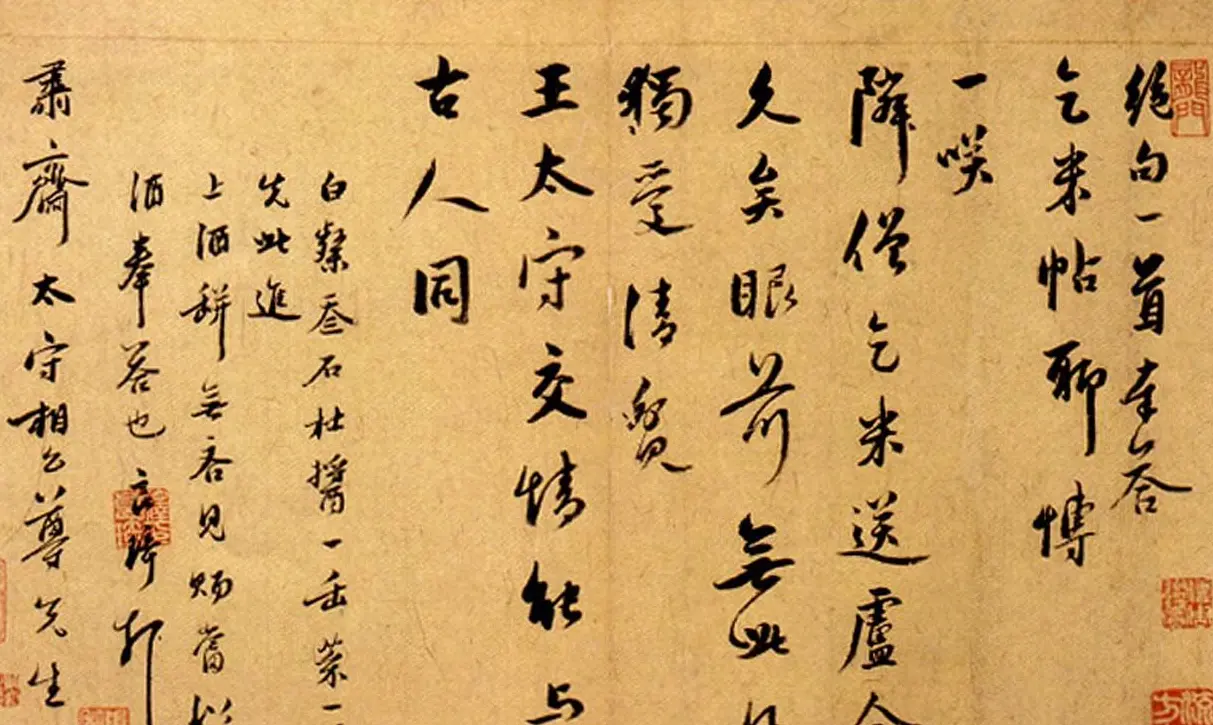 絕句一首奉答
乞米帖聊博
一咲
隣僧乞米送盧仝
久矣眼前無此
獨受清貧
王太守交情能與
古人同
白粲叁石杜醬一缶菜一
先此進
上酒缾無吝見賜當
酒奉答也
肅齋太守相公尊先生